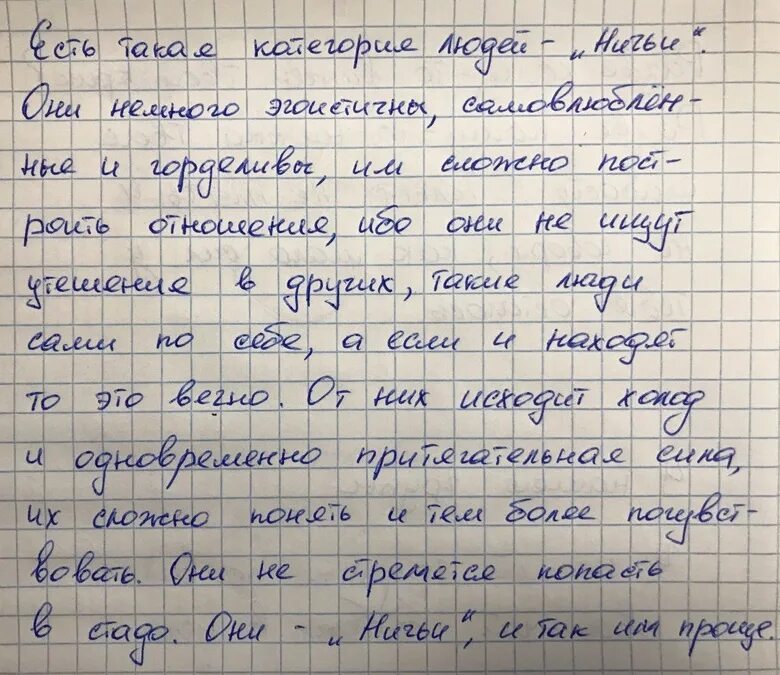 Есть такая категория людей - „Ничьи“.
Они немного эгоистичны, самовлюблён-
ные и горделивы, им сложно пост-
роить отношения, ибо они не ищут
утешение в других, такие люди
сами по себе, а если и находят
то это вечно. От них исходит холод
и одновременно притягательная сила,
их сложно понять и тем более почувст-
вовать. Они не стремятся попасть
в стадо. Они - „Ничьи“, и так им проще.